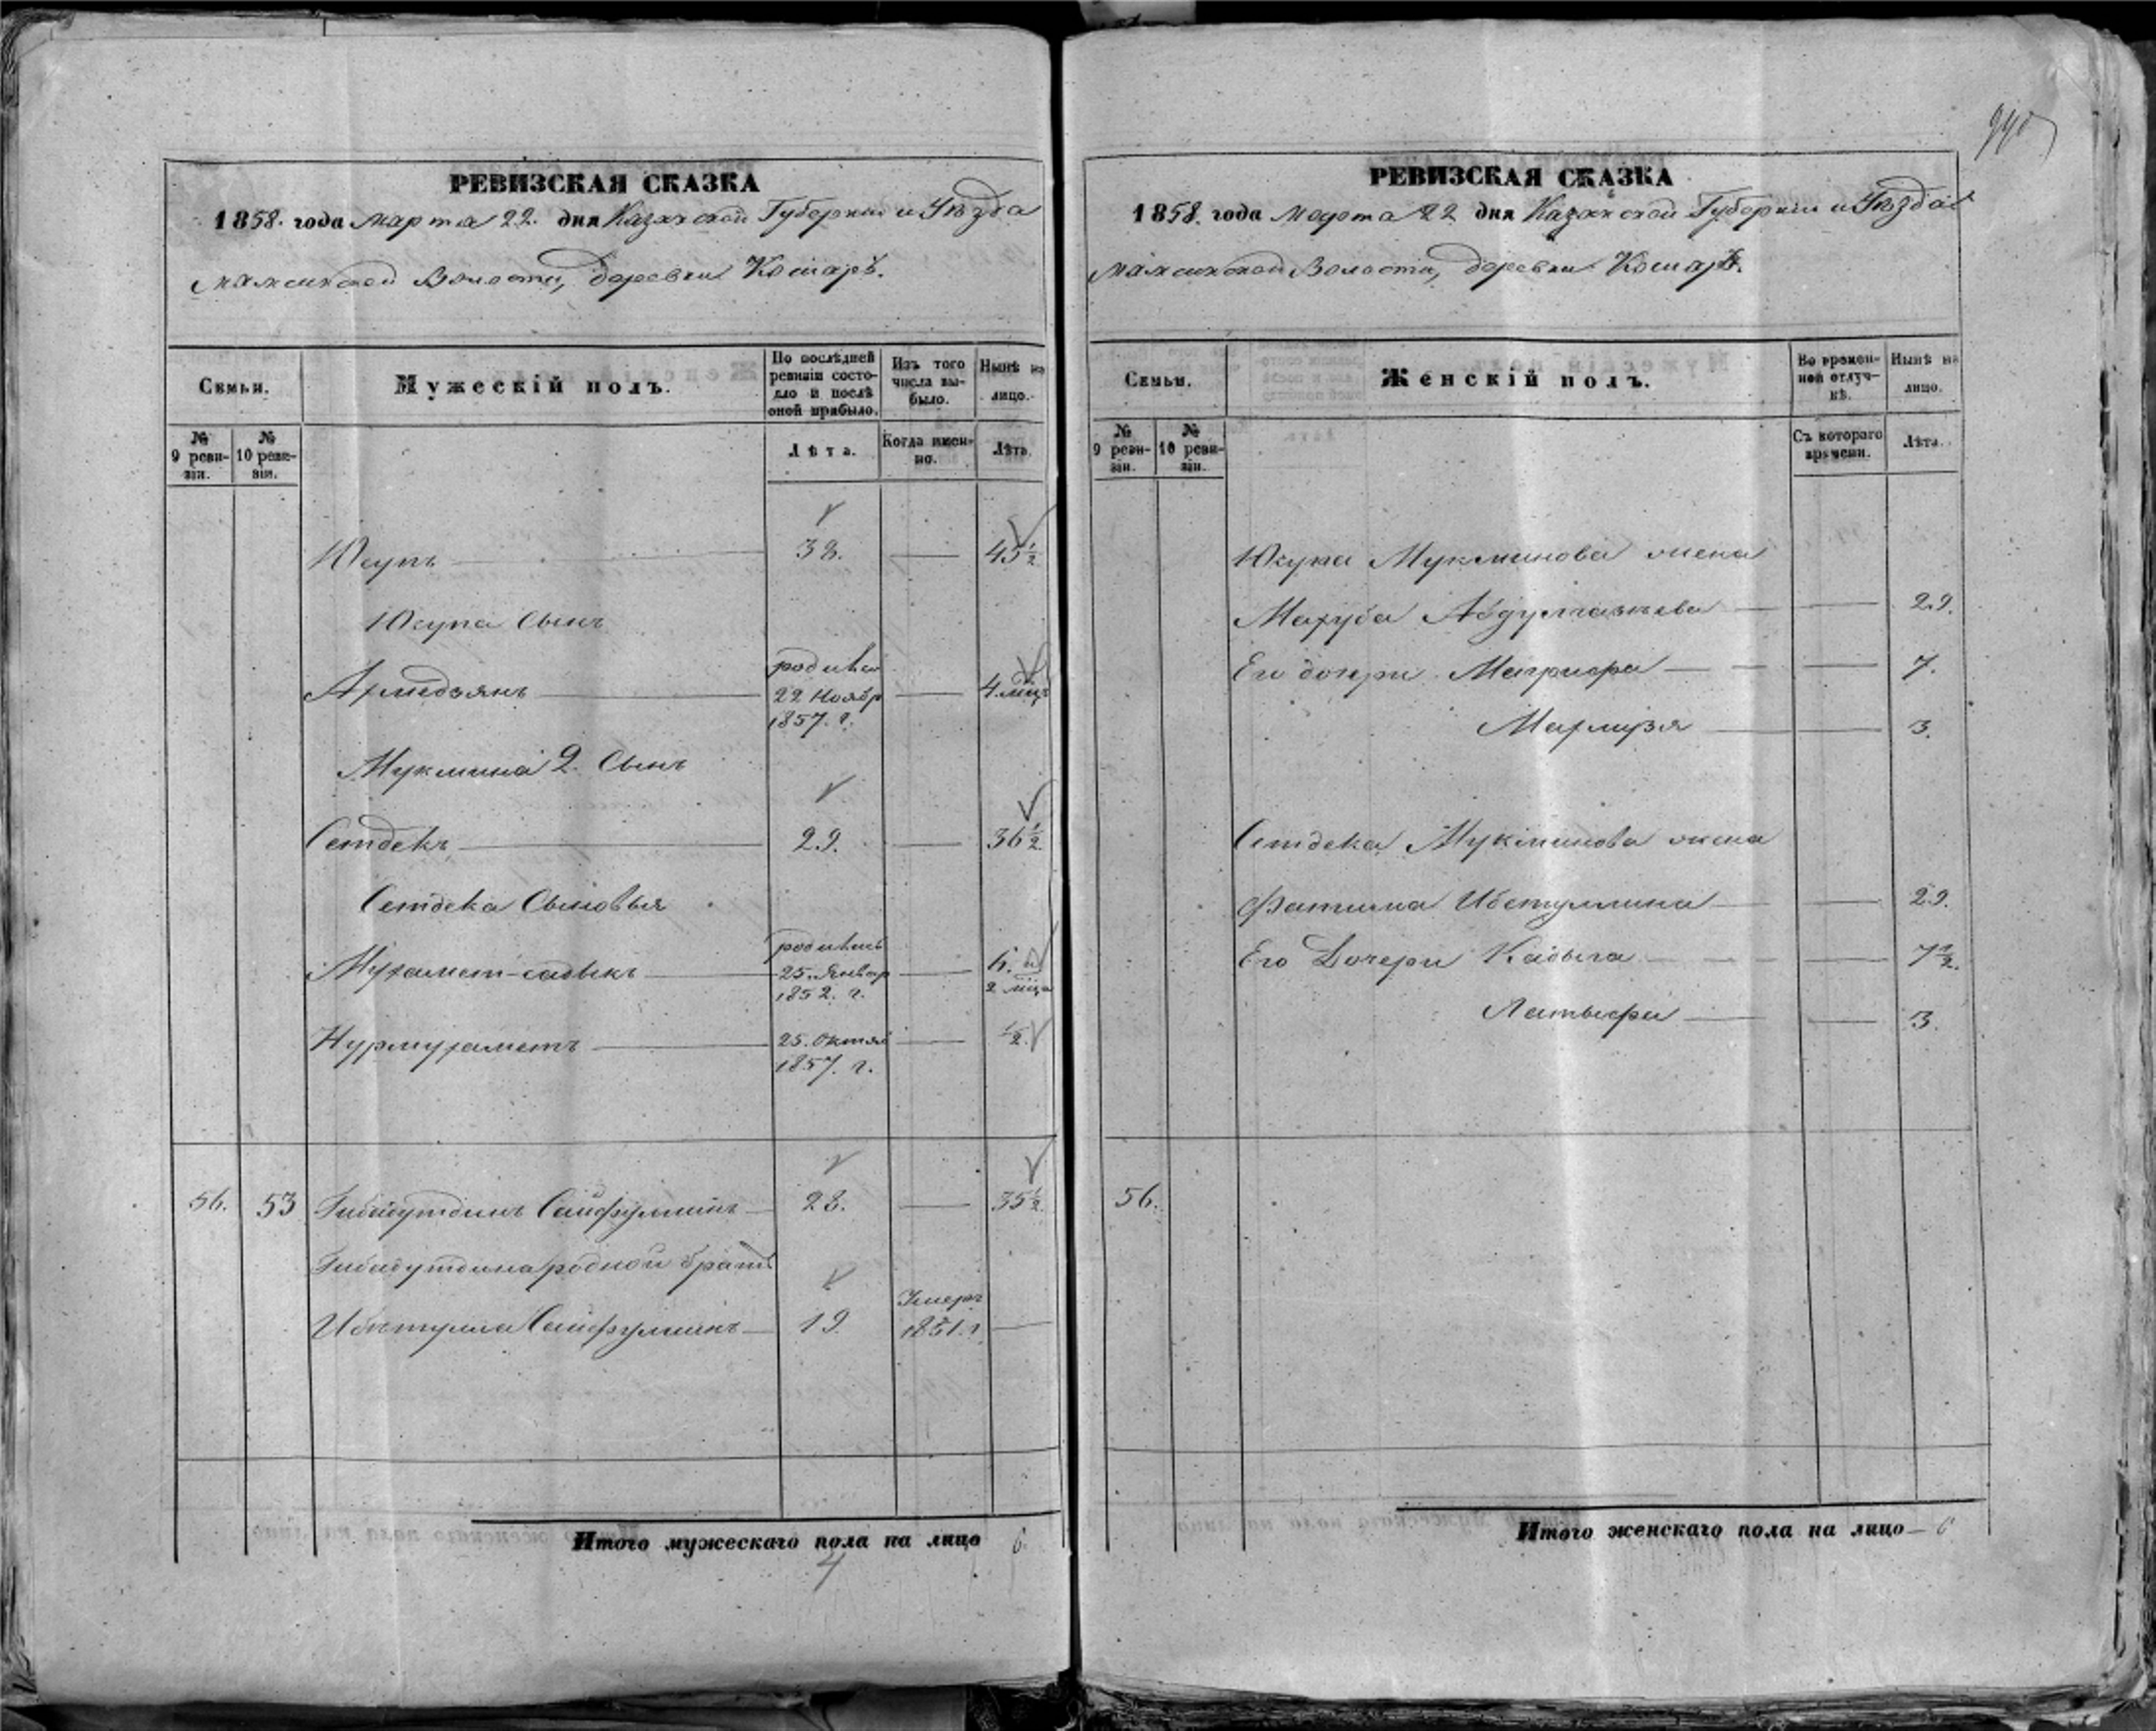 РЕВИЗСКАЯ СКАЗКА
1858. года Марта 22. дня Казанской Губернии и Уѣзда
Мамсинской Волости, деревни Кошаръ.
Семьи.
Мужескій полъ.
По послѣдней ревизіи состояло и послѣ оной прибыло.
Изъ того числа выбыло.
Нынѣ на лицо.
№ 9 ревизіи.
№ 10 ревизіи.
Лѣта.
Когда именно.
Лѣта.
Юсупъ 38. 45½
Юсупа Сынъ
родился
Ахмедзянъ 22 Ноябр 4. мѣц
1857. г.
Мукмина 2. Сынъ
Сетдекъ 29. 36½
Сетдека Сыновья
родились
Мухамет-садыкъ 25. Январ 6. и
1852. г. 2 мѣца
Нурмухаметъ 25. Октяб ½.
1857. г.
56. 53 Гибадутдинъ Сайфуллинъ 28. 35½
Гибадутдина родной братъ
Умеръ
Ибетулла Сайфуллинъ 19. 1851. г.
Итого мужескаго пола на лицо 6.
4
990
РЕВИЗСКАЯ СКАЗКА
1858. года Марта 22 дня Казанской Губерніи и Уѣзда
Мамсинской Волости, деревни Кошаръ.
Семьи.
Женскій полъ.
Во временной отлучкѣ.
Нынѣ на лицо.
№ 9 ревизіи.
№ 10 ревизіи.
Съ котораго времени.
Лѣта.
Юсупа Мукминова жена
Махуба Абдулвагаева 29.
Его дочери Магрифа 7.
Махмузя 3.
Сетдека Мукминова жена
Фатима Ибетуллина 29.
Его Дочери Кадыга 7½.
Латыфа 3.
56.
Итого женскаго пола на лицо 6